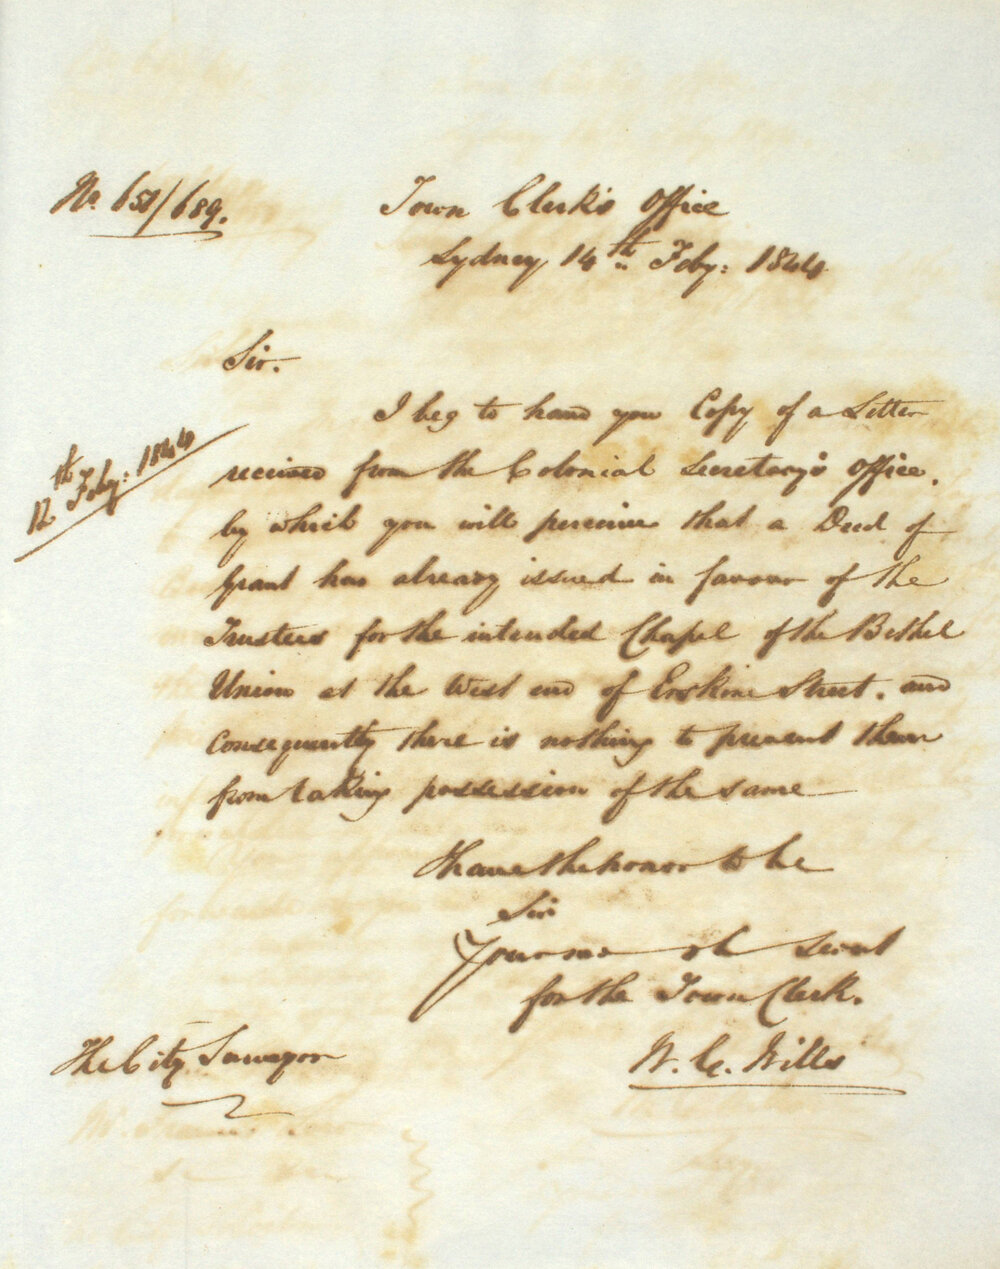 No. 651/689.
Town Clerk's Office
Sydney 14th Feby: 1844
Sir.
12th Feby: 1844
I beg to hand you Copy of a Letter
received from the Colonial Secretary's Office,
by which you will perceive that a Deed of
Grant has already issued in favour of the
Trustees for the intended Chapel of the Bethel
Union at the West end of Erskine Street, and
consequently there is nothing to prevent them
from taking possession of the same
I have the honor to be
Sir
Your mo ob Servt
for the Town Clerk.
W. G. Wills
The City Surveyor